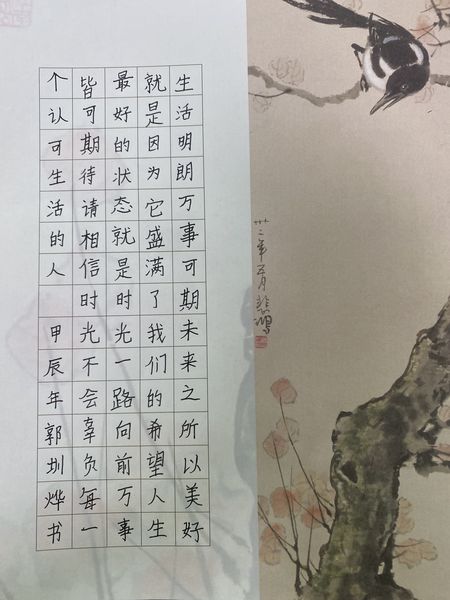 生活明朗万事可期未来之所以美好
就是因为它盛满了我们的希望人生
最好的状态就是时光一路向前万事
皆可期待请相信时光不会辜负每一
个认可生活的人 甲辰年郭圳烨书
卅二年 悲鴻